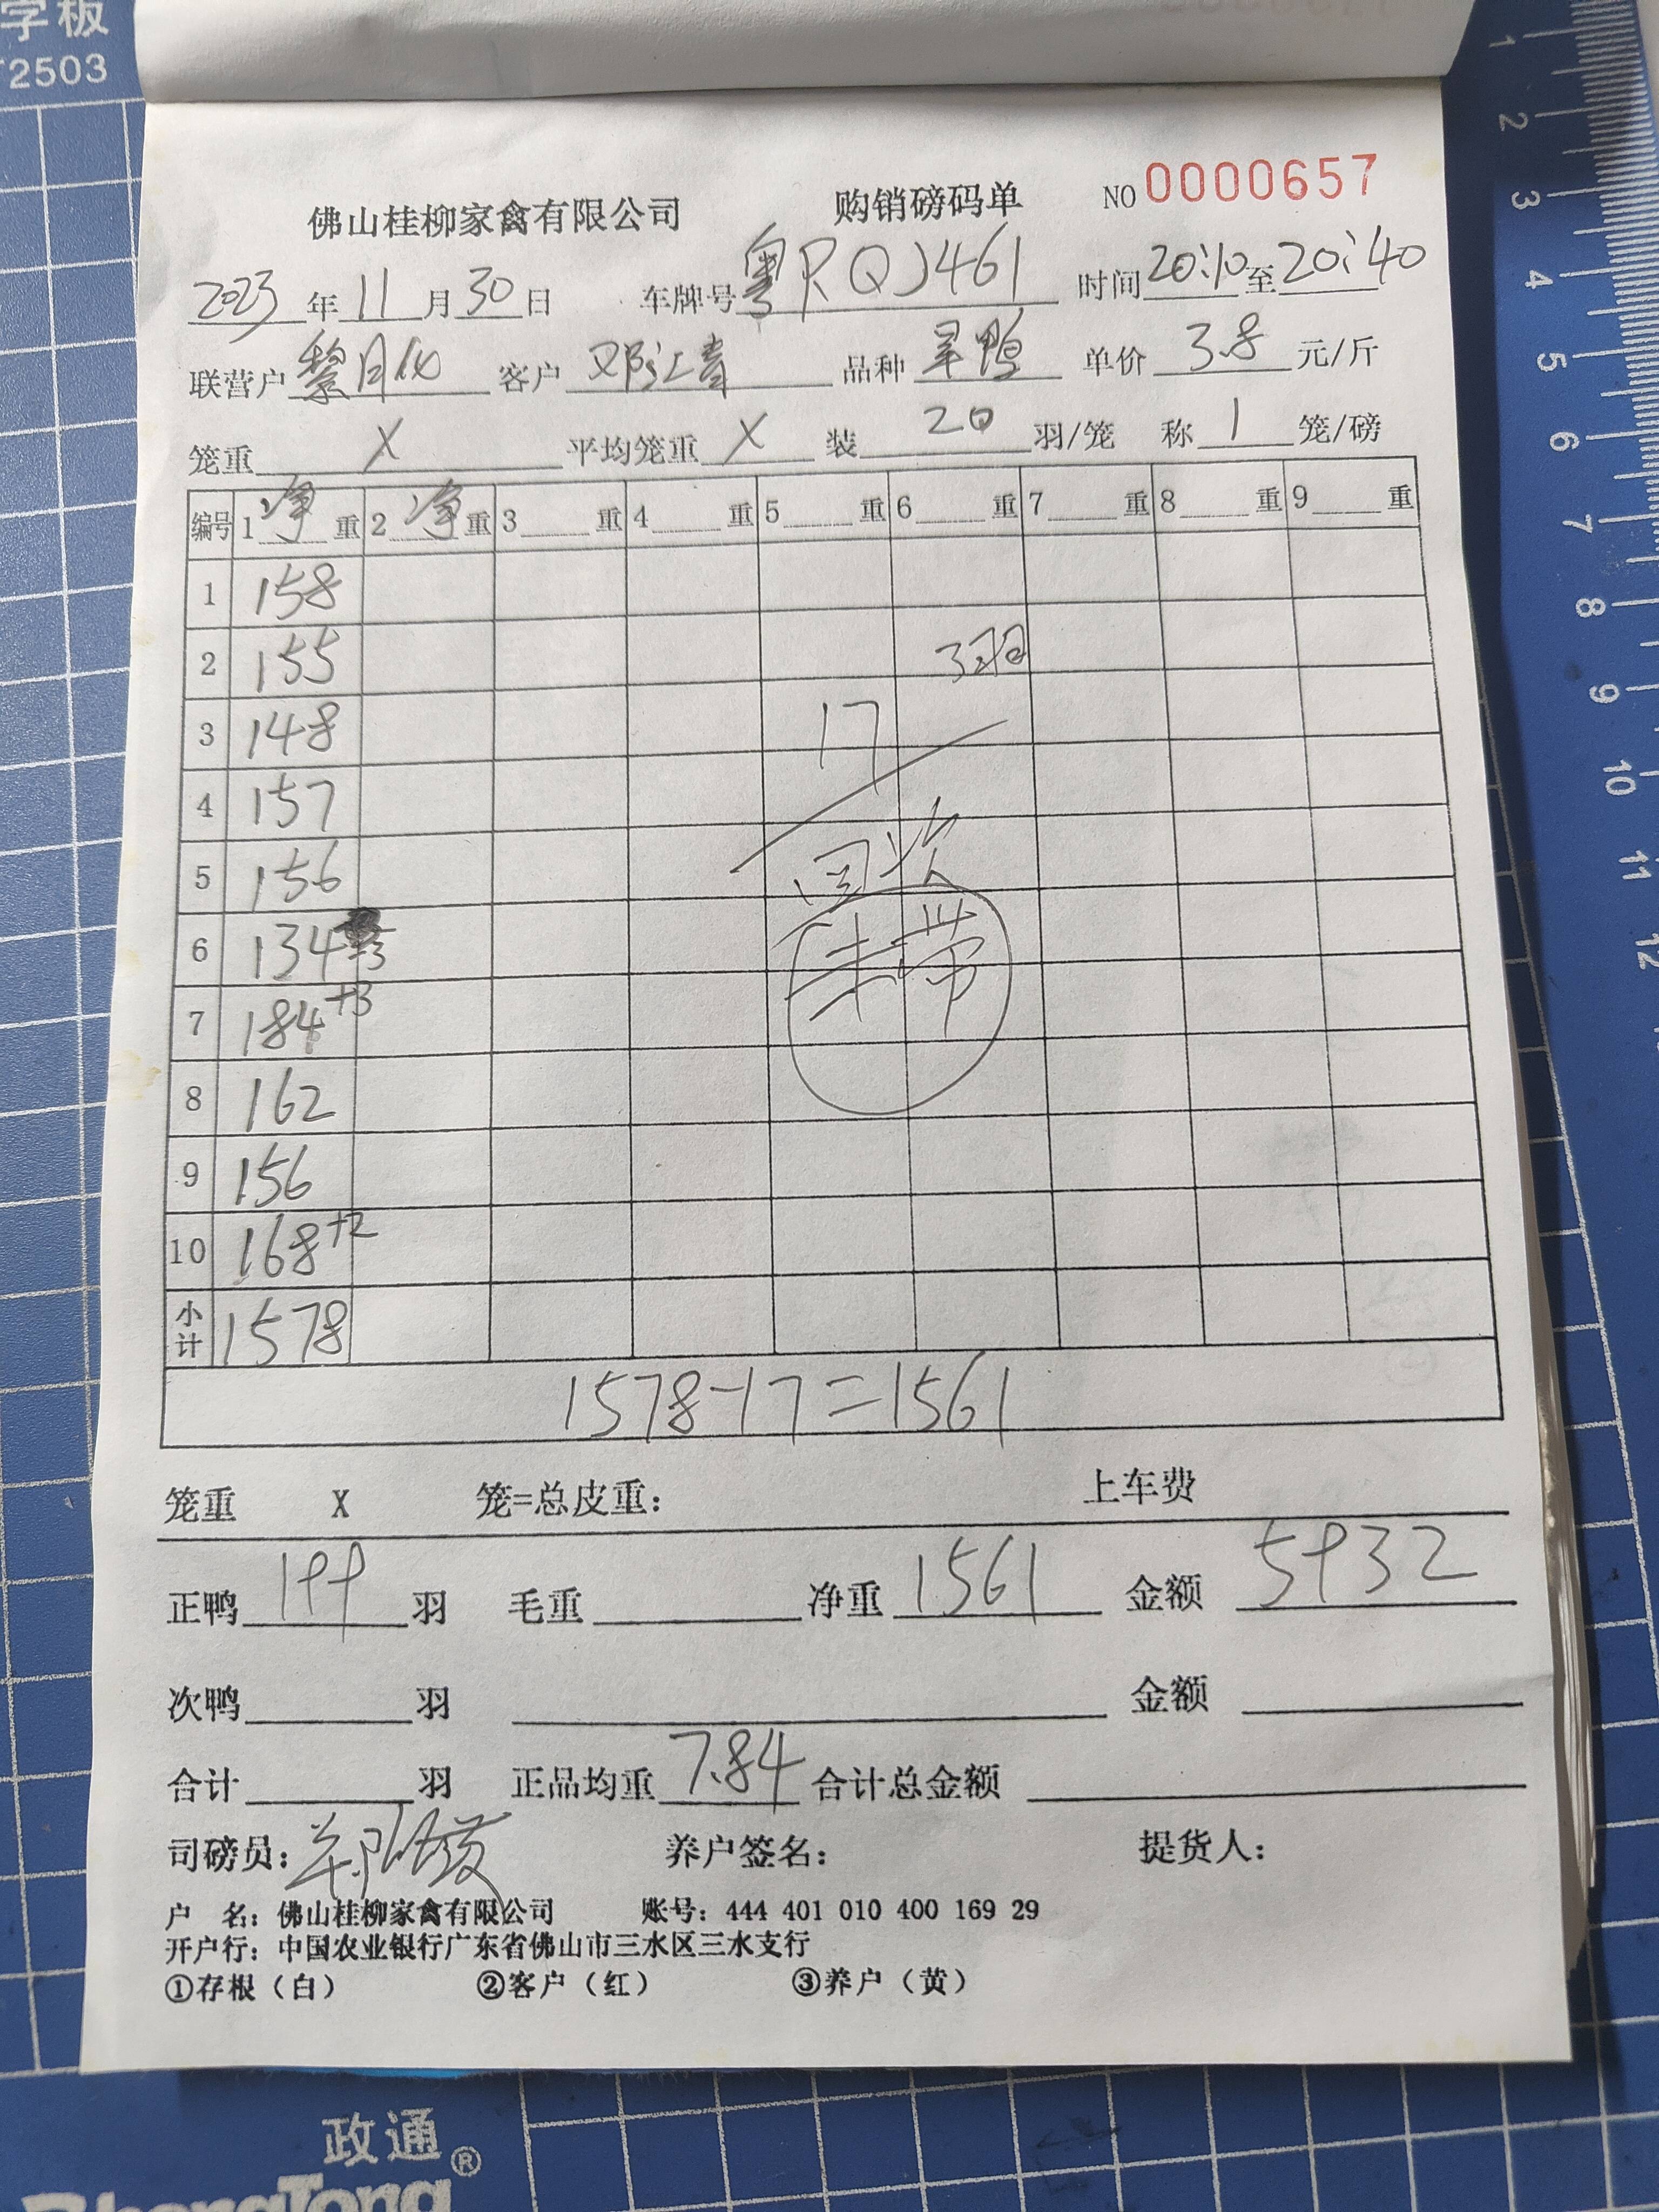 字板
T2503
佛山桂柳家禽有限公司 购销磅码单 NO 0000657
2023 年 11 月 30 日 车牌号 粤RQJ461 时间 20:10 至 20:40
联营户 黎月 客户 邓江青 品种 旱鸭 单价 3.8 元/斤
笼重 X 平均笼重 X 装 20 羽/笼 称 1 笼/磅
编号 1 净 重 2 净 重 3 重 4 重 5 重 6 重 7 重 8 重 9 重
1 158
2 155 3羽
3 148 17
4 157
5 156 回次
6 134 -3 未带
7 184 +3
8 162
9 156
10 168 +2
小计 1578
1578-17=1561
笼重 X 笼=总皮重: 上车费
正鸭 199 羽 毛重 净重 1561 金额 5932
次鸭 羽 金额
合计 羽 正品均重 7.84 合计总金额
司磅员: 养户签名: 提货人:
户 名: 佛山桂柳家禽有限公司 账号: 444 401 010 400 169 29
开户行: 中国农业银行广东省佛山市三水区三水支行
①存根（白） ②客户（红） ③养户（黄）
政通®
ZhengTong
1
2
3
4
5
6
7
8
9
10
11
12